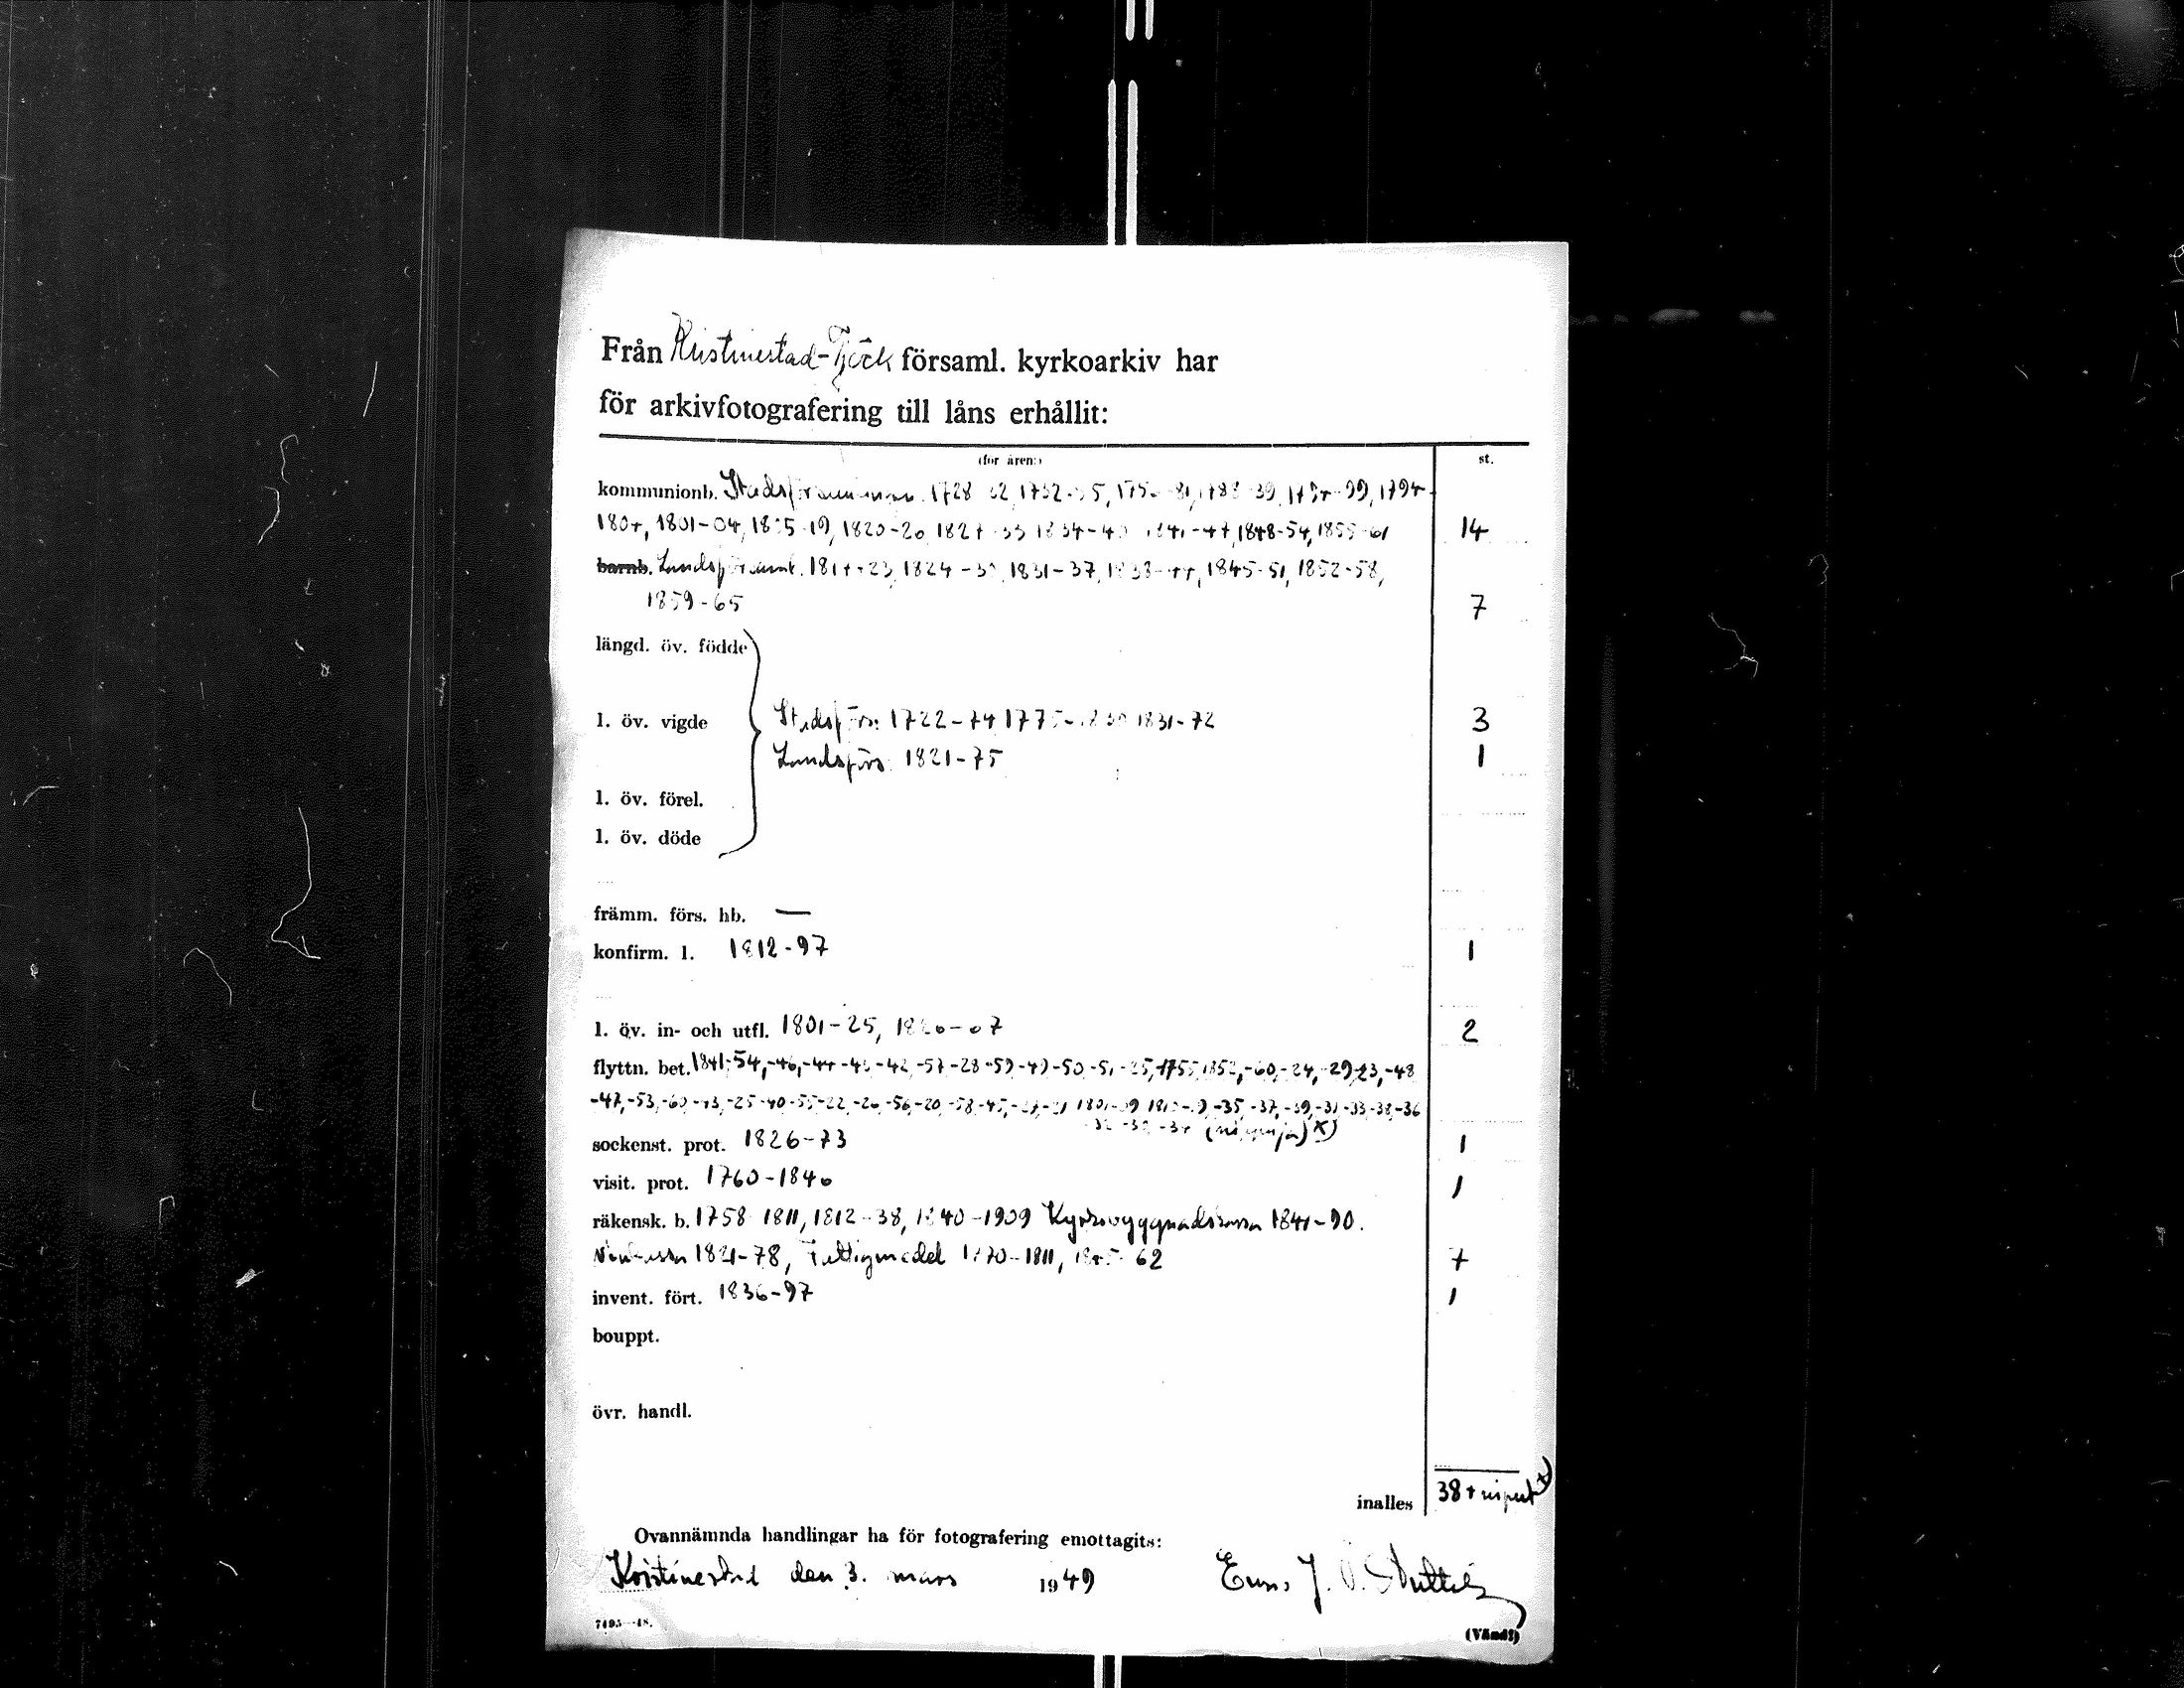 Från Kristinestad-Tjöck församl. kyrkoarkiv har
för arkivfotografering till låns erhållit:
(för åren:) st.
kommunionb. 1728 1794-
1801-04, 19, 1820-26, 1834-40 1848-54, 1855-61 14
barnb. 23, 1824-30, 1831-37, 1838-44, 1845-51, 1852-58,
1859-65 7
längd. öv. födde
l. öv. vigde Stadsförs: 1722-74 1775-1830 1831-72 3
Landsförs. 1821-75 1
l. öv. förel.
l. öv. döde
främm. förs. hb. —
konfirm. l. 1812-97 1
l. öv. in- och utfl. 1801-25, 2
flyttn. bet. 1841,-54,-46,-44 -42,-57-28-59-49-50-51-25, 1755, 1852,-60,-24,-29,-23,-48
-47,-53,-60 -43,-25-40-55-22,-26,-56,-20,-58,-45, -35,-37,-39,-31,-33,-38,-36
-34 x)
sockenst. prot. 1826-73 1
visit. prot. 1760-1840 1
räkensk. b. 1758 1811, 1812-38, 1840-1909 Kyrkobyggnadskassa 1841-90.
1821-78, Fattigmedel 1770-1811, 62 7
invent. fört. 1836-97 1
bouppt.
övr. handl.
inalles 38 + x)
Ovannämnda handlingar ha för fotografering emottagits:
Kristinestad den 3. mars 1949
7495—48. (Vänd!)